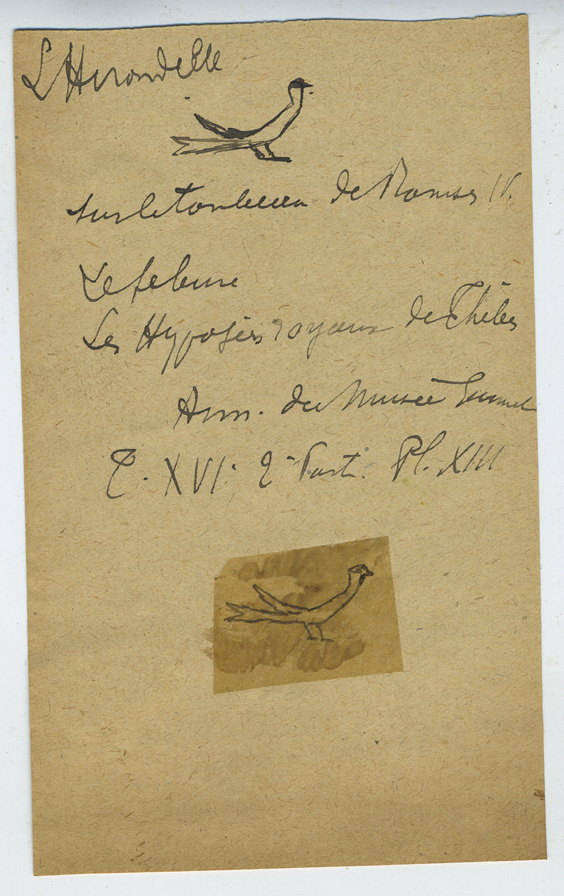 L'Hirondelle
sur le tombeau de Ramses IV.
Lefebure
Les Hypogées royaux de Thèbes
Ann. du Musée Guimet
T. XVI. 2e Part. Pl. XIII